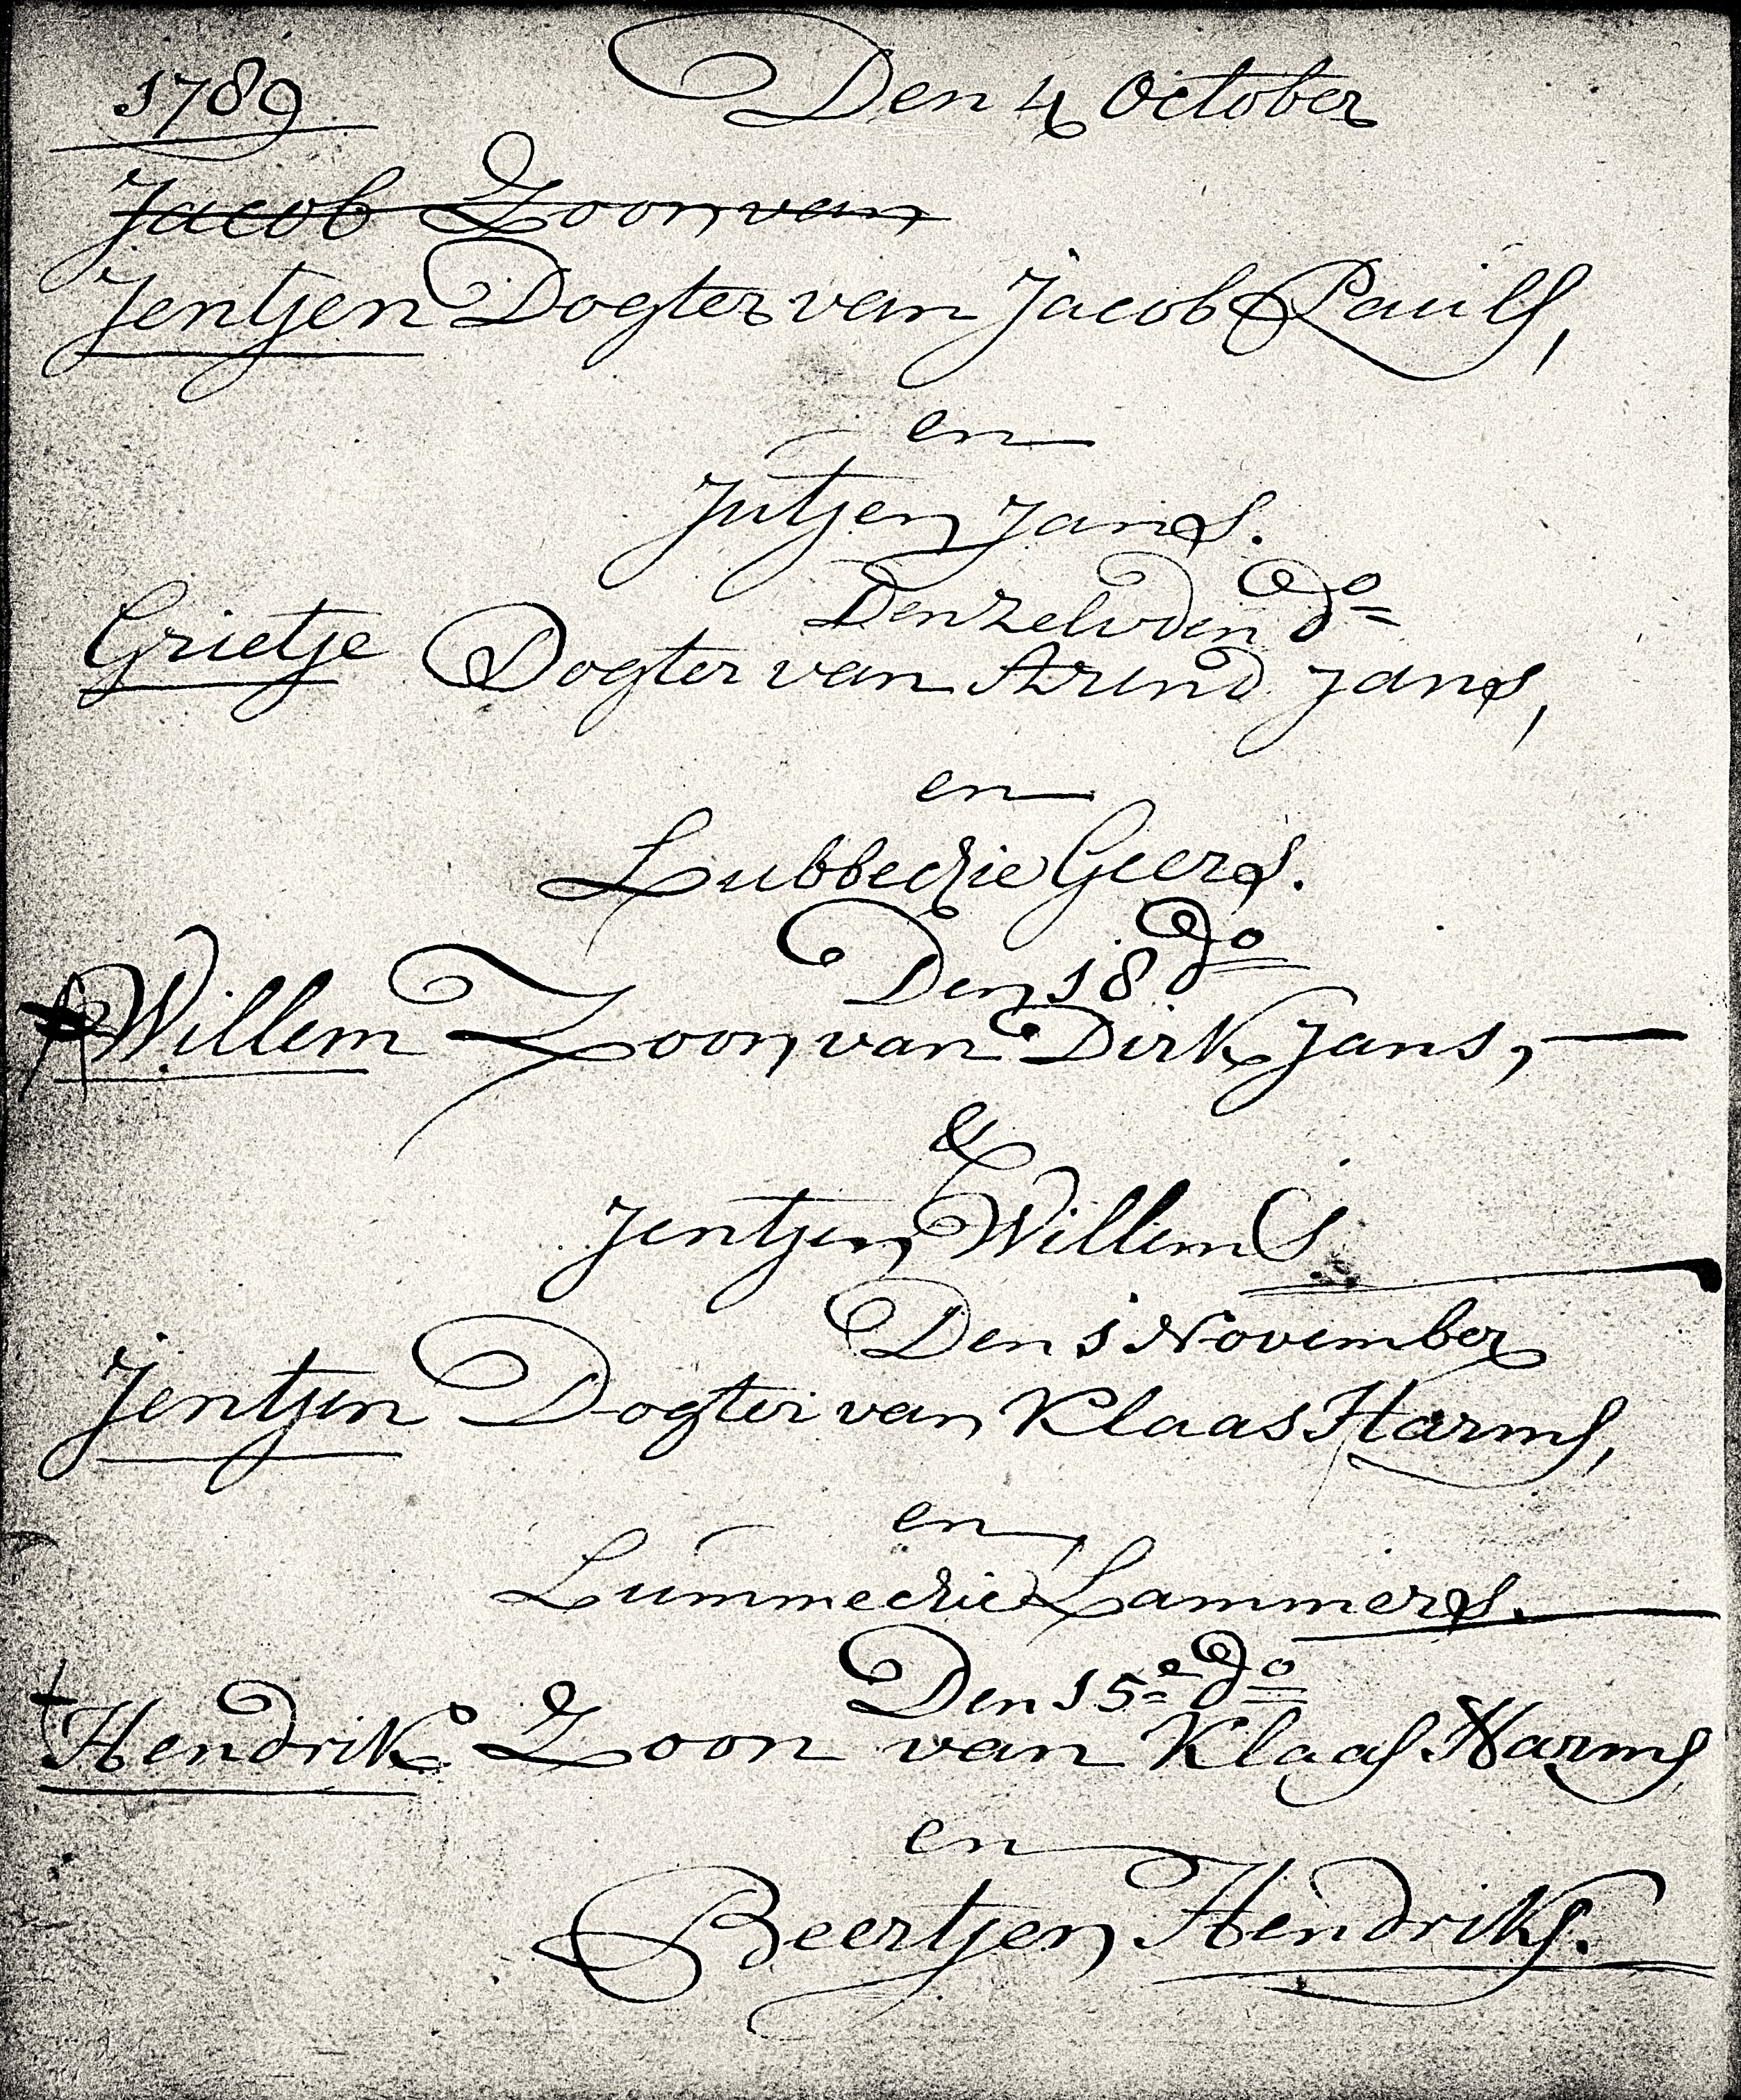 1789 Den 4 October
Jacob Zoon van
Jentjen Dogter van Jacob Pauls,
en
Jutjen Jans.
Denzelvden do
Grietje Dogter van Arend Jans,
en
Lubbechie Geers.
Den 18 do
Willem Zoon van Dirk Jans,
&
Jentjen Willems
Den 1 November
Jentjen Dogter van Klaas Harms,
en
Lummechie Lammers.
Den 15e do
Hendrik Zoon van Klaas Harms
en
Beertjen Hendriks.